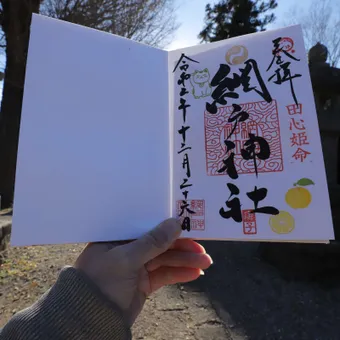 奉拝
田心姫命
網戸神社
令和五年十二月二十六日